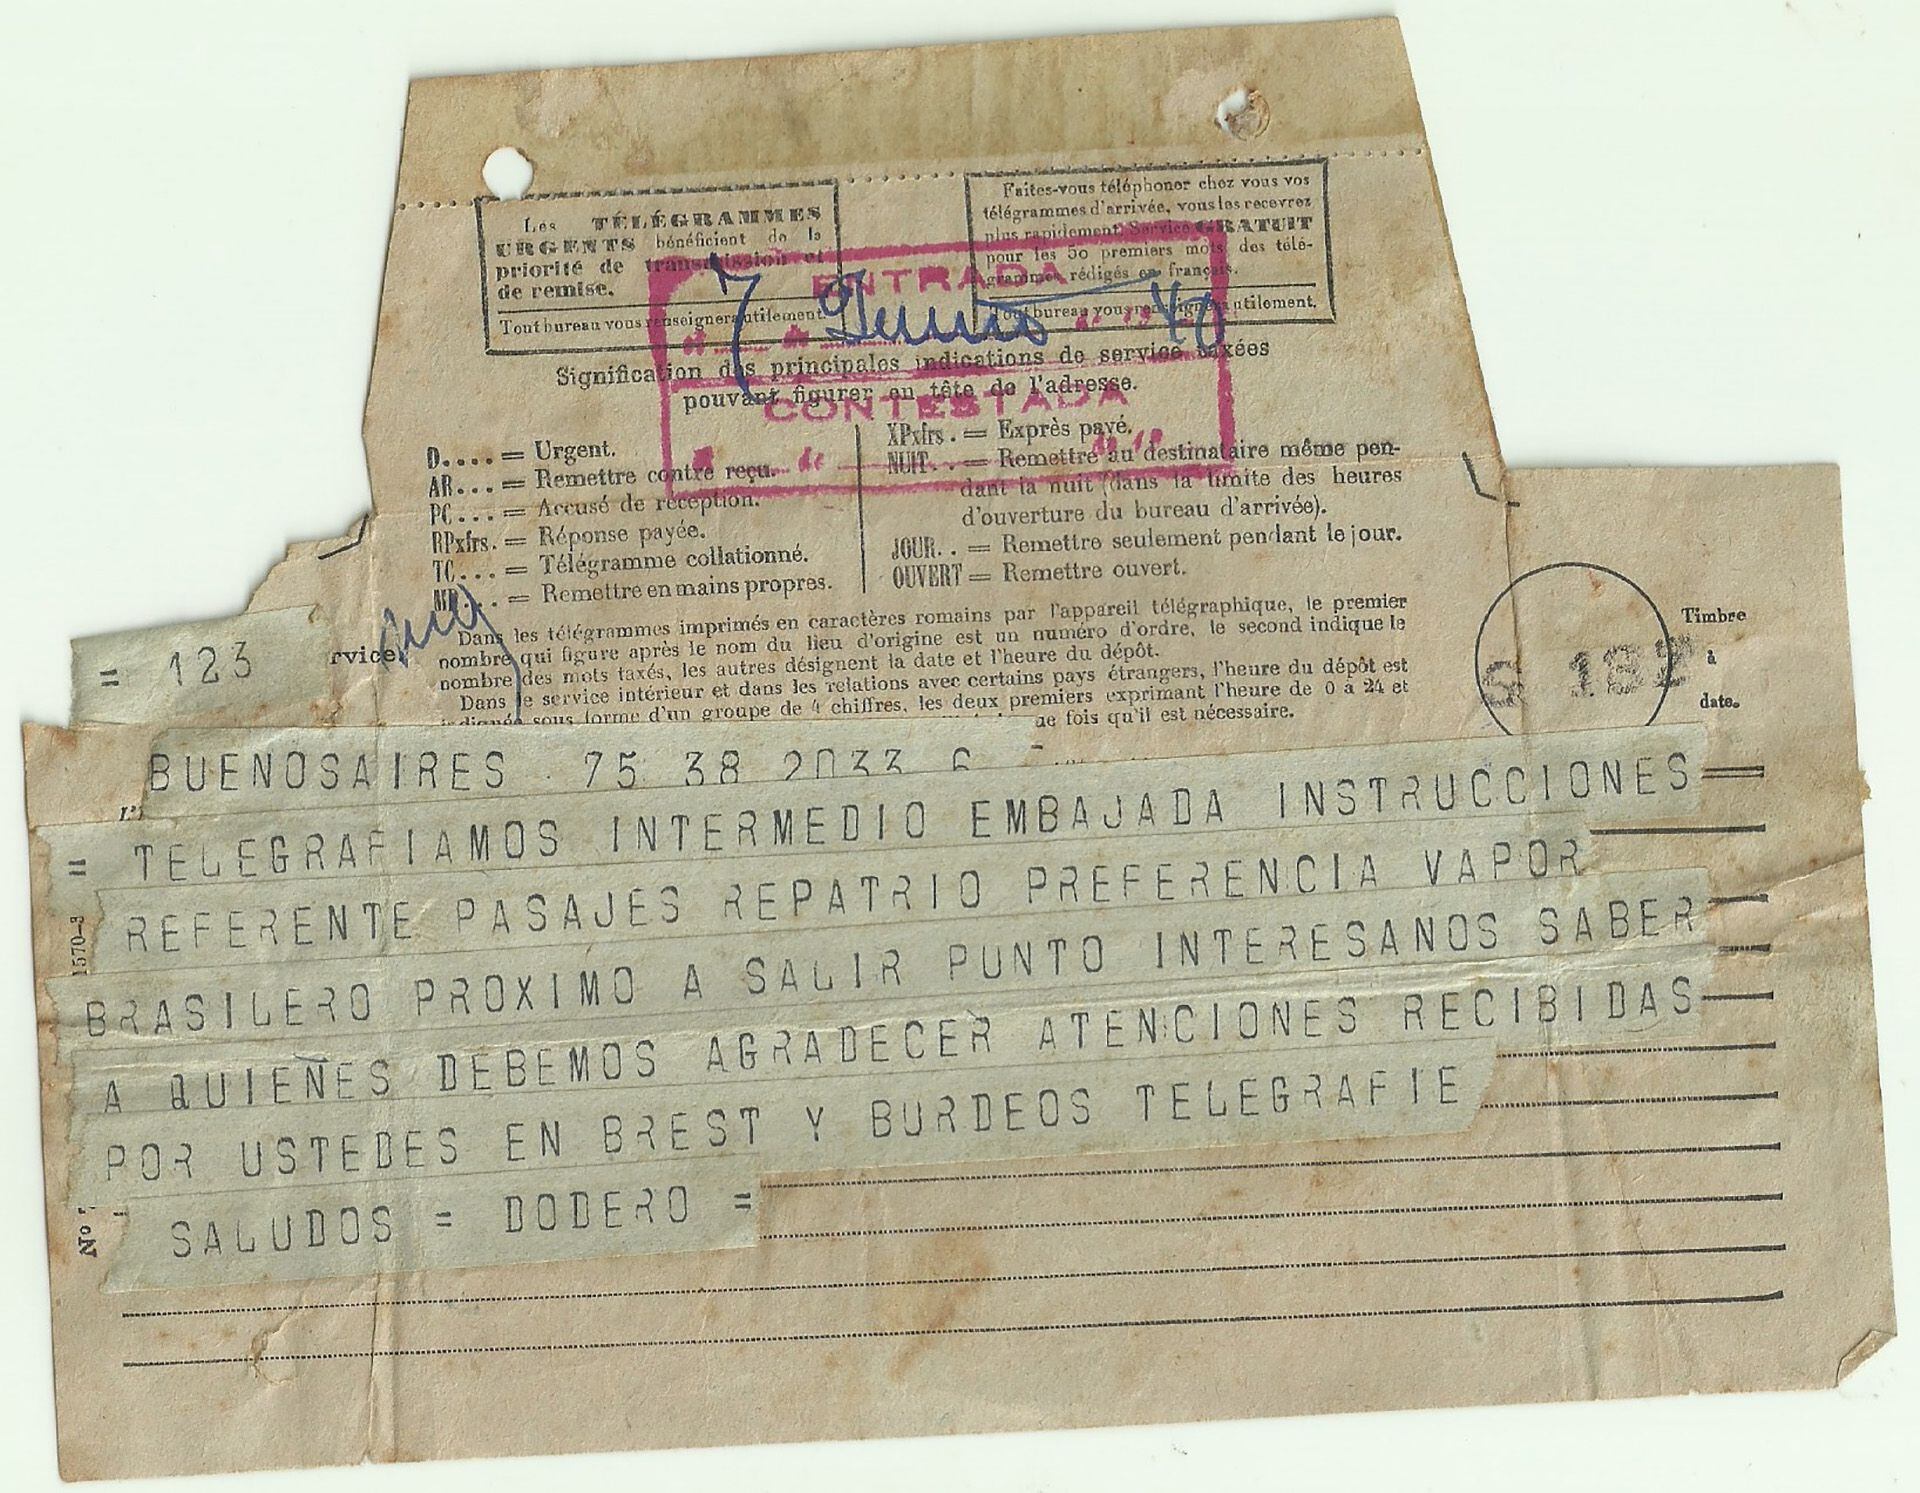 Les TÉLÉGRAMMES
URGENTS bénéficient de la
priorité de transmission et
de remise.
Tout bureau vous renseignera utilement.
Faites-vous téléphoner chez vous vos
télégrammes d'arrivée, vous les recevrez
plus rapidement. Service GRATUIT
pour les 50 premiers mots des télé-
grammes rédigés en français.
Tout bureau vous renseignera utilement.
ENTRADA
7 Junio 40
CONTESTADA
de
Signification des principales indications de service taxées
pouvant figurer en tête de l'adresse.
D.... = Urgent.
AR... = Remettre contre reçu.
PC... = Accusé de réception.
RPxfrs. = Réponse payée.
TC... = Télégramme collationné.
MP... = Remettre en mains propres.
XPxfrs. = Exprès payé.
NUIT.. = Remettre au destinataire même pen-
dant la nuit (dans la limite des heures
d'ouverture du bureau d'arrivée).
JOUR.. = Remettre seulement pendant le jour.
OUVERT = Remettre ouvert.
Dans les télégrammes imprimés en caractères romains par l'appareil télégraphique, le premier
nombre qui figure après le nom du lieu d'origine est un numéro d'ordre, le second indique le
nombre des mots taxés, les autres désignent la date et l'heure du dépôt.
Dans le service intérieur et dans les relations avec certains pays étrangers, l'heure du dépôt est
indiquée sous forme d'un groupe de 4 chiffres, les deux premiers exprimant l'heure de 0 à 24 et
que fois qu'il est nécessaire.
= 123
rvice.
Timbre
à
date.
S 182
BUENOSAIRES 75 38 2033 6
= TELEGRAFIAMOS INTERMEDIO EMBAJADA INSTRUCCIONES
REFERENTE PASAJES REPATRIO PREFERENCIA VAPOR
BRASILERO PROXIMO A SALIR PUNTO INTERESANOS SABER
A QUIENES DEBEMOS AGRADECER ATENCIONES RECIBIDAS
POR USTEDES EN BREST Y BURDEOS TELEGRAFIE
SALUDOS = DODERO =
1570-3
Nº